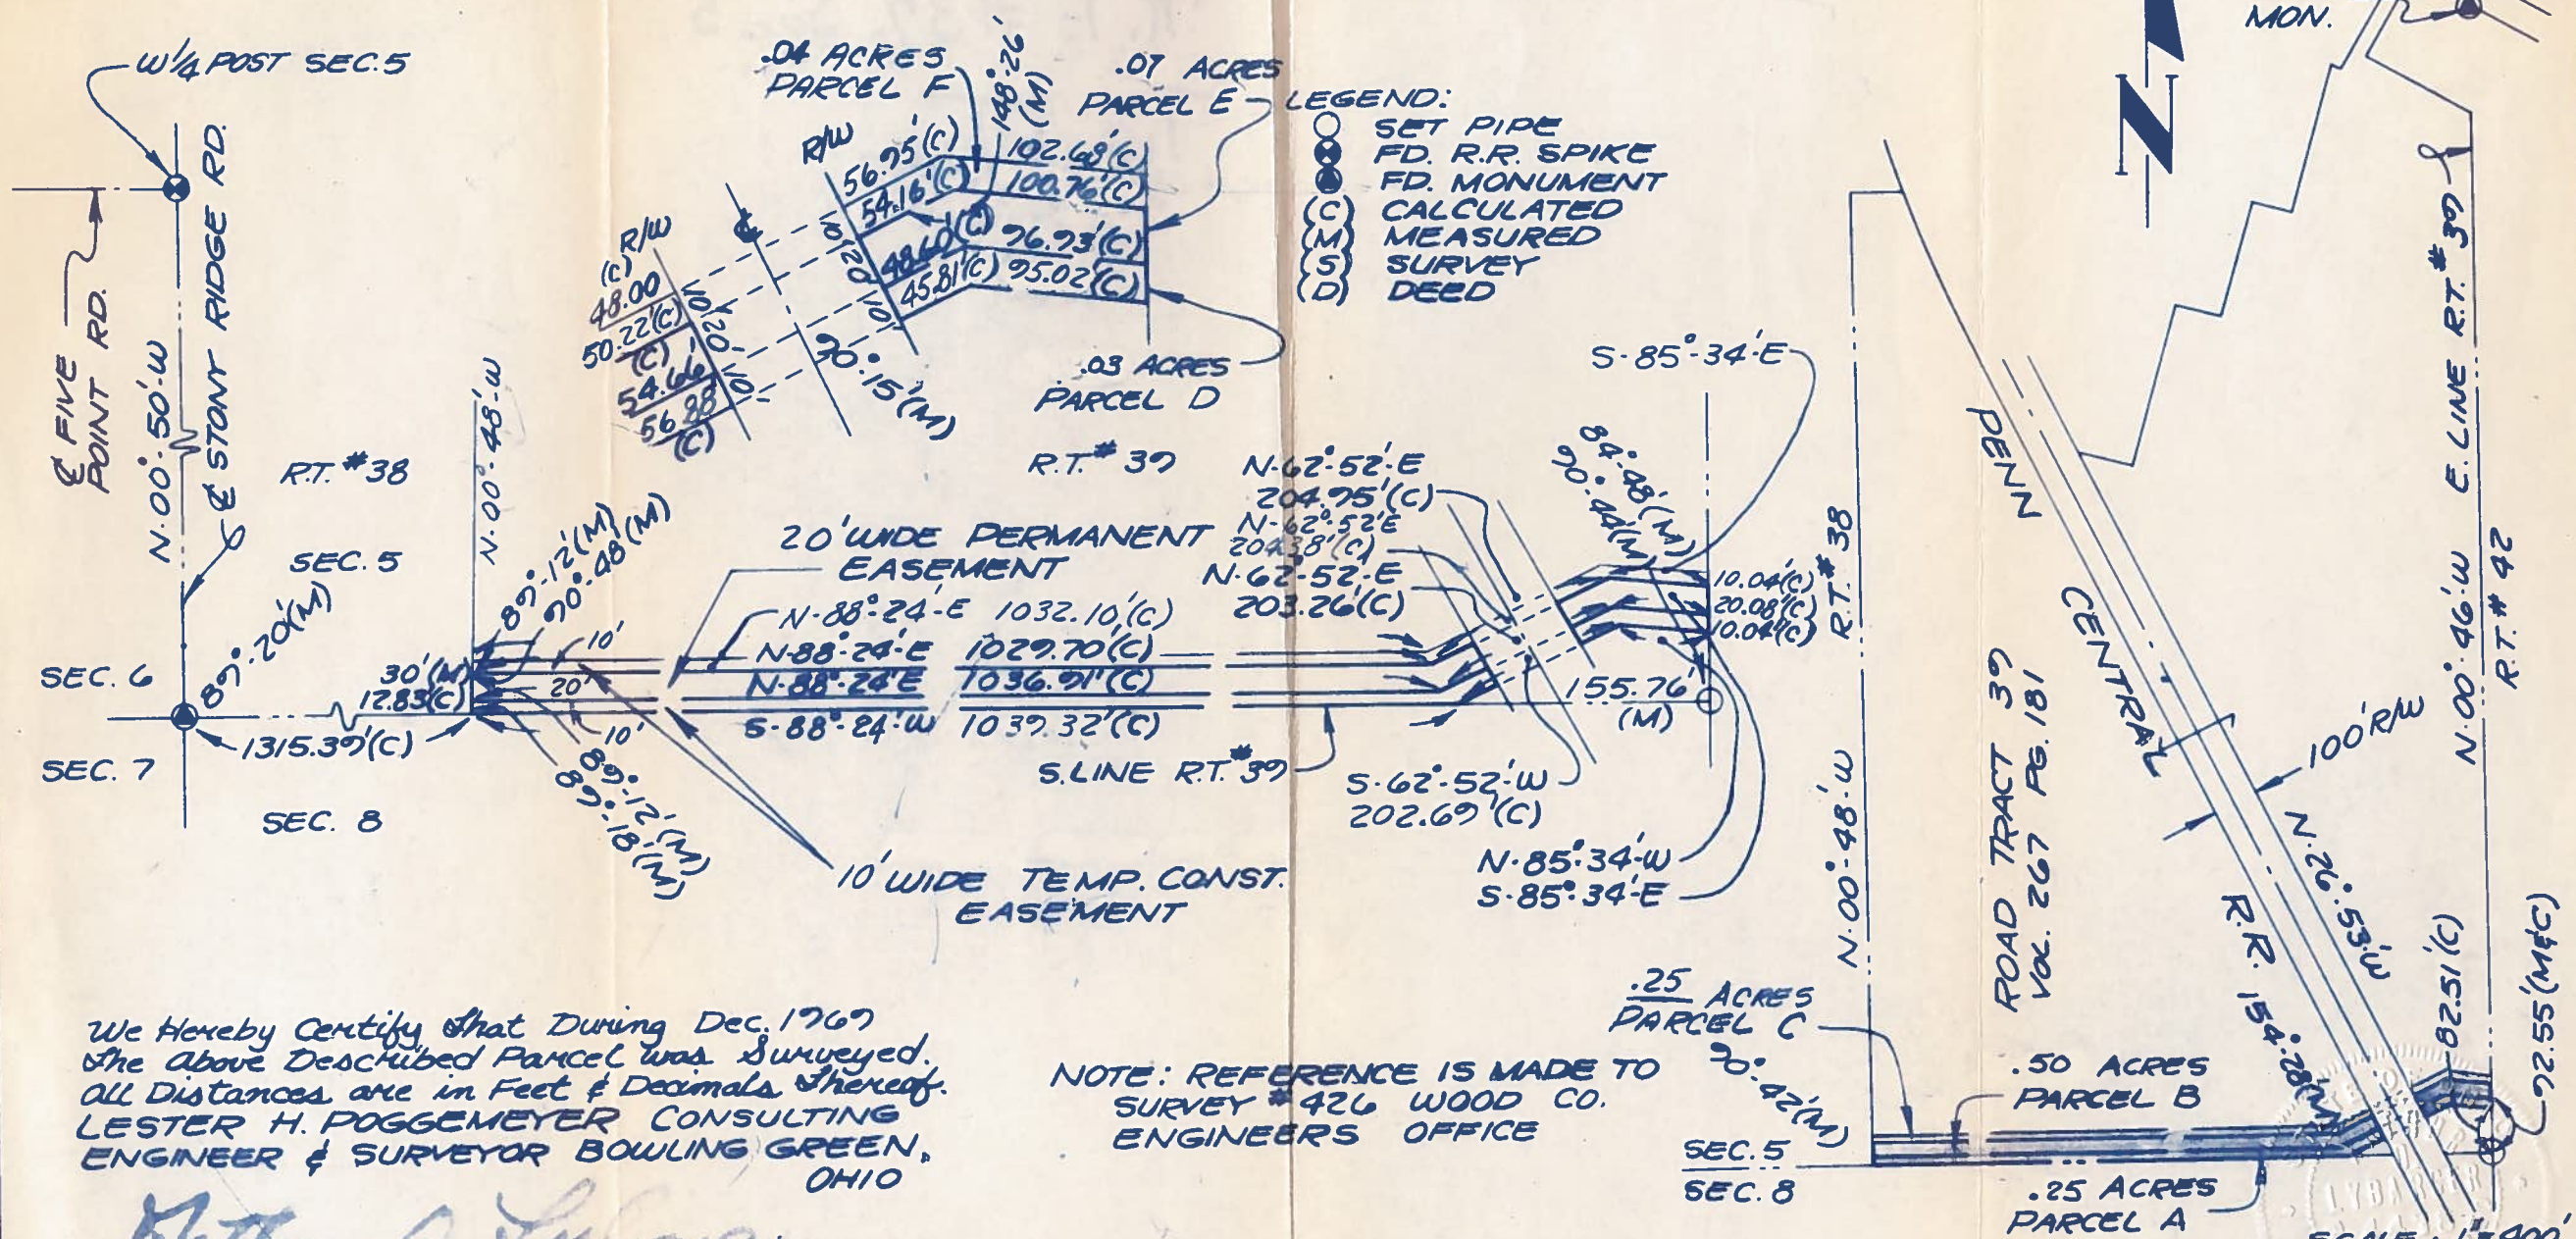 W 1/4 POST SEC. 5
℄ FIVE
POINT RD.
N·00°·50'·W
℄ STONY RIDGE RD.
R.T. #38
SEC. 5
SEC. 6
SEC. 7
SEC. 8
89°·20'(M)
1315.39'(C)
N·00°·48'·W
30'(M)
12.83'(C)
89°·12'(M)
90°·48'(M)
10'
20'
10'
89°·12'(M)
89°·18'(M)
.04 ACRES
PARCEL F
148°·26'
(M)
.07 ACRES
PARCEL E
R/W
56.95'(C)
102.68'(C)
54.16'(C)
100.76'(C)
48.60'(C)
96.93'(C)
45.81'(C)
95.02'(C)
10'
20'
10'
.03 ACRES
PARCEL D
℄
R/W
(C)
48.00
50.22'(C)
(C)
54.66
56.88
(C)
10'
20'
10'
90°·15'(M)
LEGEND:
SET PIPE
FD. R.R. SPIKE
FD. MONUMENT
(C) CALCULATED
(M) MEASURED
(S) SURVEY
(D) DEED
R.T. #39
20' WIDE PERMANENT
EASEMENT
N·88°·24'·E 1032.10'(C)
N·88°·24'·E 1029.70'(C)
N·88°·24'E 1036.91'(C)
S·88°·24'·W 1039.32'(C)
S. LINE R.T. #39
10' WIDE TEMP. CONST.
EASEMENT
N·62°·52'·E
204.95'(C)
N·62°·52'E
204.38'(C)
N·62°·52'·E
203.26'(C)
S·62°·52'·W
202.69'(C)
S·85°·34'E
84°·48'(M)
90°·44'(M)
10.04'(C)
20.08'(C)
10.04'(C)
155.76'
(M)
N·85°·34'·W
S·85°·34'·E
MON.
N
R.T. #38
N·00°·48'·W
PENN CENTRAL R.R.
ROAD TRACT 39
VOL. 267 PG. 181
100' R/W
N·26°·53'·W
154°·28'(M)
E. LINE R.T. #39
N·00°·46'·W
R.T. #42
82.51'(C)
92.55'(M&C)
.25 ACRES
PARCEL C
90°·42'(M)
.50 ACRES
PARCEL B
SEC. 5
SEC. 8
.25 ACRES
PARCEL A
We Hereby Certify That During Dec. 1969
The Above Described Parcel was Surveyed.
All Distances are in Feet & Decimals Thereof.
LESTER H. POGGEMEYER CONSULTING
ENGINEER & SURVEYOR BOWLING GREEN,
OHIO
NOTE: REFERENCE IS MADE TO
SURVEY #426 WOOD CO.
ENGINEERS OFFICE
LYBARGER
SCALE: 1"=400'